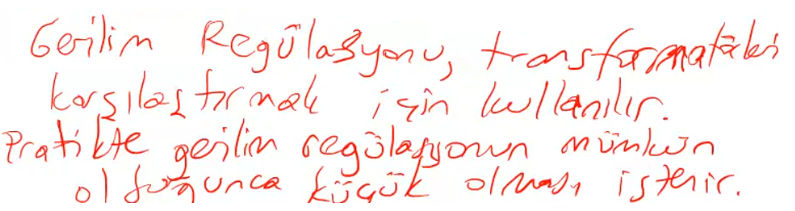 Gerilim Regülasyonu, transformatörleri
karşılaştırmak için kullanılır.
Pratikte gerilim regülasyonun mümkün
olduğunca küçük olması istenir.